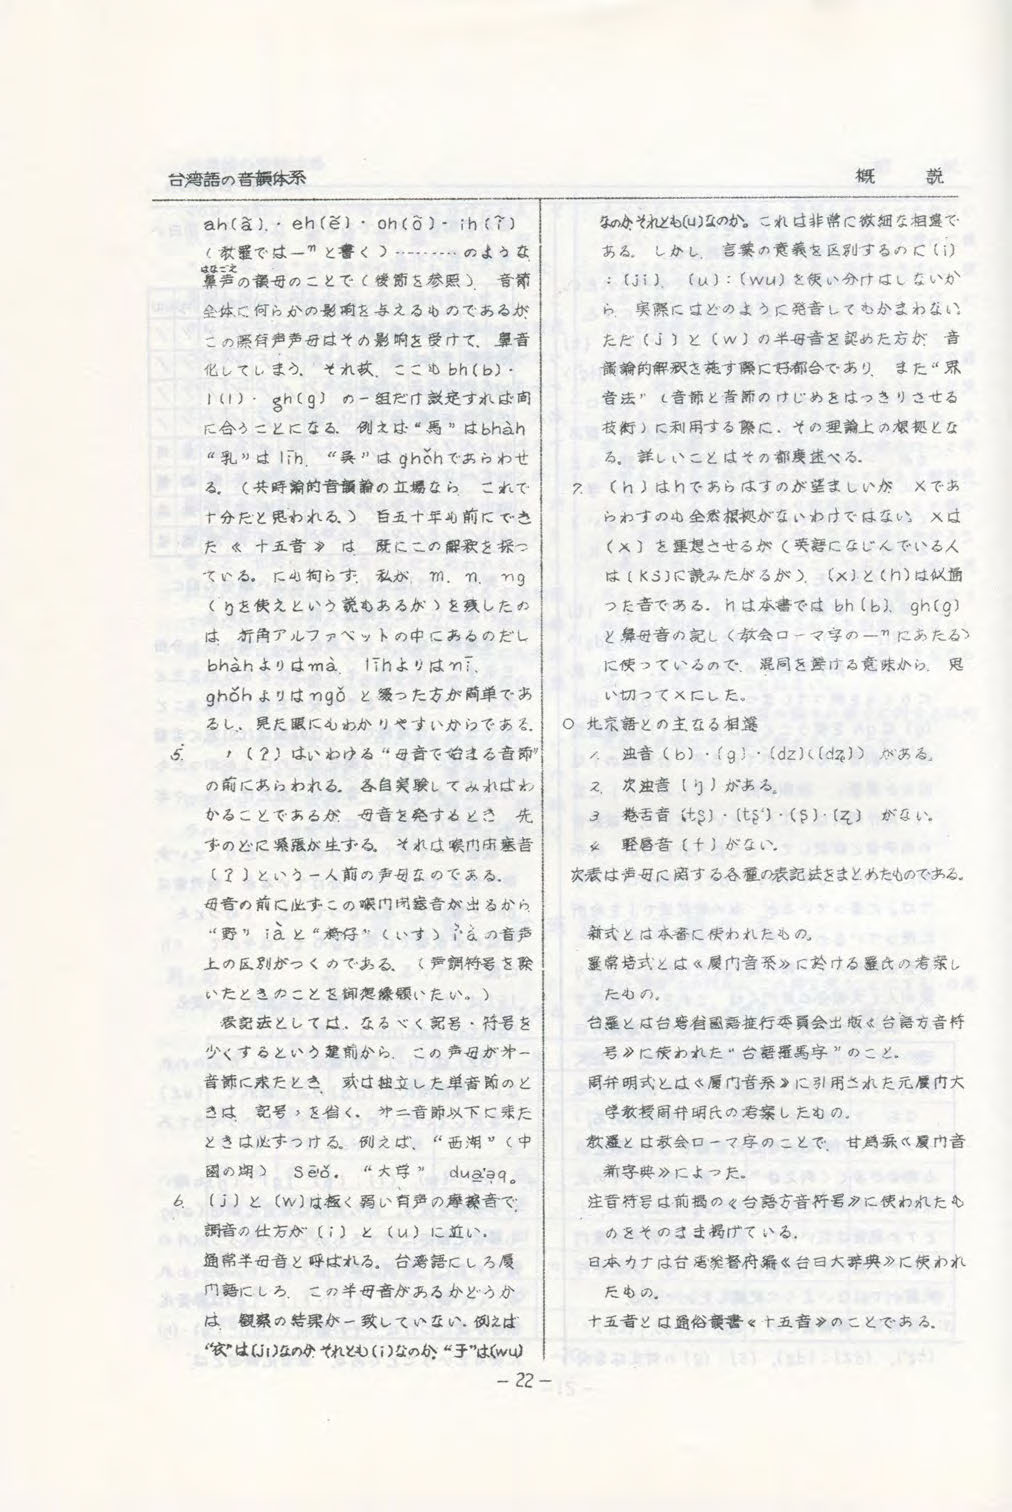 台湾語の音韻体系
概説
ah(ã)・eh(ẽ)・oh(õ)・ih(ĩ)
(教羅では—ⁿと書く)………のような
鼻声の韻母のことで(後節を参照)、音節
はなごえ
全体に何らかの影響を与えるものであるが、
この際有声声母はその影響を受けて、鼻音
化してしまう。それ故、ここもbh(b)・
l(l)・gh(g)の一組だけ設定すれば間
に合うことになる。例えば“馬”はbhàh
“乳”はlīh、“呉”はghǒhであらわせ
る。(共時論的音韻論の立場なら、これで
十分だと思われる。)百五十年も前にでき
た《十五音》は、既にこの解釈を採っ
ている。にも拘らず、私が、m、n、ng
(ŋを使えという説もあるが)を残したの
は、折角アルファベットの中にあるのだし
bhàhよりはmà、līhよりはnī、
ghǒhよりはngǒと綴った方が簡単であ
るし、見た眼にもわかりやすいからである。
5. ,(ʔ)はいわゆる“母音で始まる音節”
の前にあらわれる。各自実験してみればわ
かることであるが、母音を発するとき、先
ずのどに緊張が生ずる。それは喉門閉塞音
(ʔ)という一人前の声母なのである。
母音の前に必ずこの喉門閉塞音が出るから、
“野”iàと“椅仔”(いす)ì'àの音声
上の区別がつくのである。(声調符号を除
いたときのことを御想像願いたい。)
表記法としては、なるべく記号・符号を
少くするという建前から、この声母が第一
音節に来たとき、或は独立した単音節のと
きは、記号,を省く。第二音節以下に来た
ときは必ずつける。例えば、“西湖”(中
國の湖)Sē'ǒ。“大学”dua'aq。
6. (j)と(w)は極く弱い有声の摩擦音で、
調音の仕方が(i)と(u)に近い。
通常半母音と呼ばれる。台湾語にしろ厦
門語にしろ、この半母音があるかどうか
は、観察の結果が一致していない。例えば
“衣”は(ji)なのか、それとも(i)なのか；“于”は(wu)
なのかそれとも(u)なのか。これは非常に微細な相違で
ある。しかし、言葉の意義を区別するのに(i)
：(ji)、(u)：(wu)を使い分けはしないか
ら、実際にはどのように発音してもかまわない。
ただ(j)と(w)の半母音を認めた方が、音
韻論的解釈を施す際に好都合であり、また“界
音法”(音節と音節のけじめをはっきりさせる
技術)に利用する際に、その理論上の根拠とな
る。詳しいことはその都度述べる。
7. (h)はhであらはすのが望ましいが、xであ
らわすのも全然根拠がないわけではない。xは
(x)を連想させるが(英語になじんでいる人
は(ks)に読みたがるが)、(x)と(h)は似通
った音である。hは本書ではbh(b)、gh(g)
と鼻母音の記し(教会ローマ字の—ⁿにあたる)
に使っているので、混同を避ける意味から、思
い切ってxにした。
○ 北京語との主なる相違
1. 濁音(b)・(g)・(dz)((dʑ))がある。
2. 次濁音(ŋ)がある。
3. 捲舌音(tʂ)・(tʂ‘)・(ʂ)・(ʐ)がない。
4. 軽唇音(f)がない。
次表は声母に関する各種の表記法をまとめたものである。
新式とは本書に使われたもの。
羅常培式とは《厦門音系》に於ける羅氏の考案し
たもの。
台羅とは台湾省國語推行委員会出版《台語方音符
号》に使われた“台語羅馬字”のこと。
周弁明式とは《厦門音系》に引用された元厦門大
学教授周弁明氏の考案したもの。
教羅とは教会ローマ字のことで、甘為霖《厦門音
新字典》によった。
注音符号は前掲の《台語方音符号》に使われたも
のをそのまま掲げている。
日本カナは台湾総督府編《台日大辞典》に使われ
たもの。
十五音とは通俗韻書《十五音》のことである。
－22－